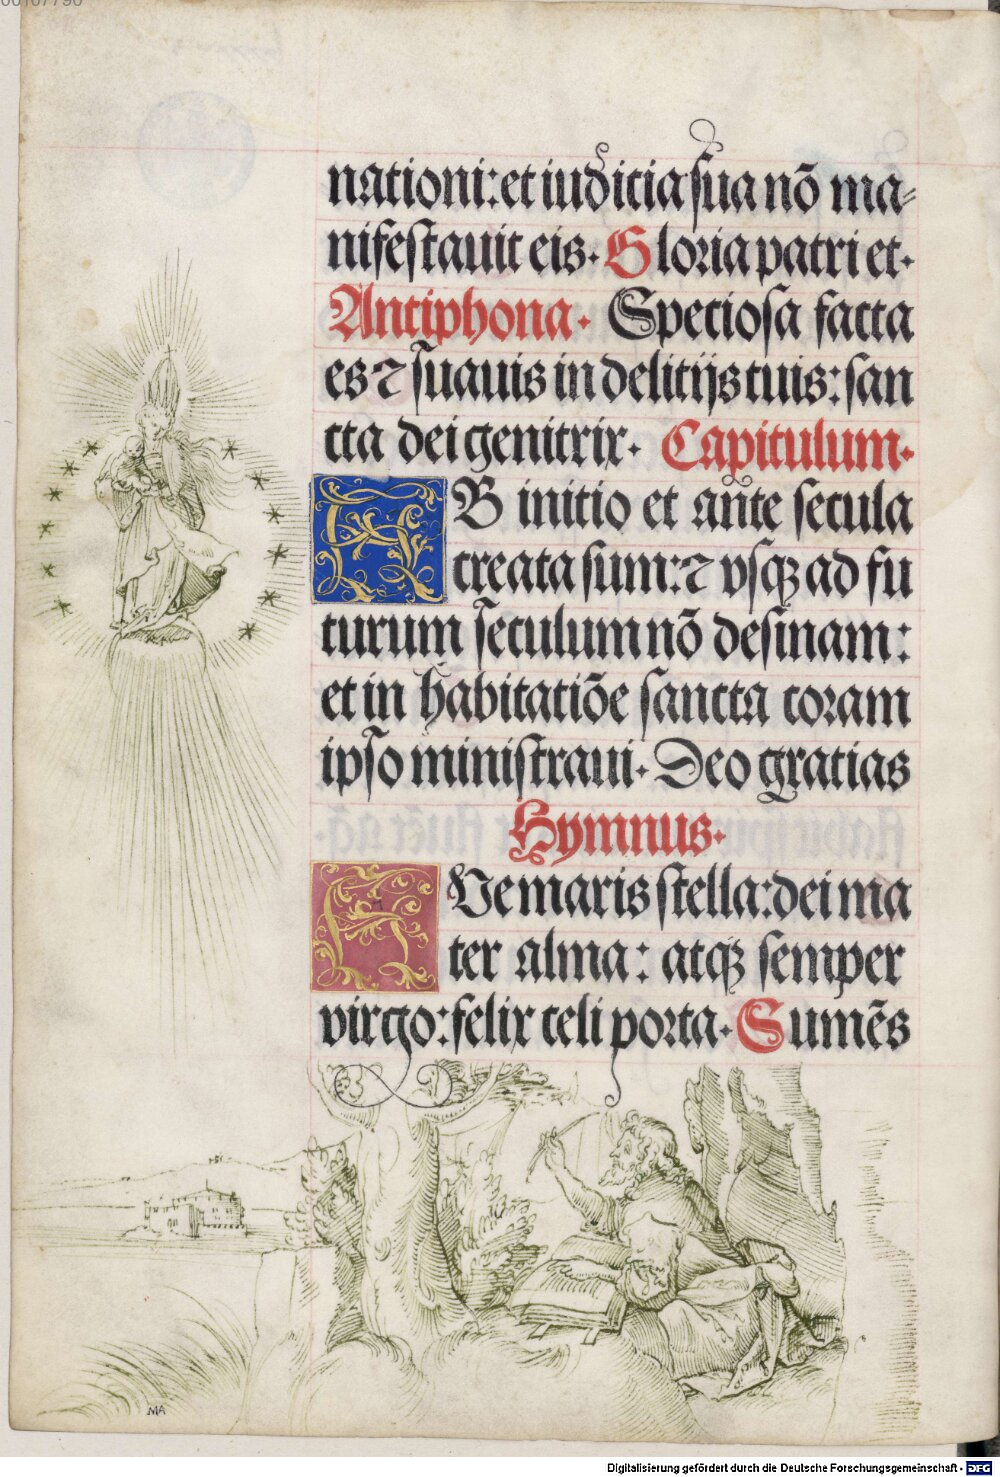 00107790
nationi: et iudicia sua nō ma-
nifestauit eis. Gloria patri et.
Antiphona. Speciosa facta
es ⁊ suauis in delitijs tuis: san
cta dei genitrix. Capitulum.
AB initio et ante secula
creata sum: ⁊ vsqꝫ ad fu
turum seculum nō desinam:
et in habitatiōe sancta coram
ipso ministraui. Deo gratias
Hymnus.
AVe maris stella: dei ma
ter alma: atqꝫ semper
virgo: felix celi porta. Sumēs
MA
Digitalisierung gefördert durch die Deutsche Forschungsgemeinschaft - DFG